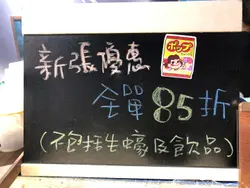 新張優惠
ポップ
全單85折
(不包括生蠔及飲品)